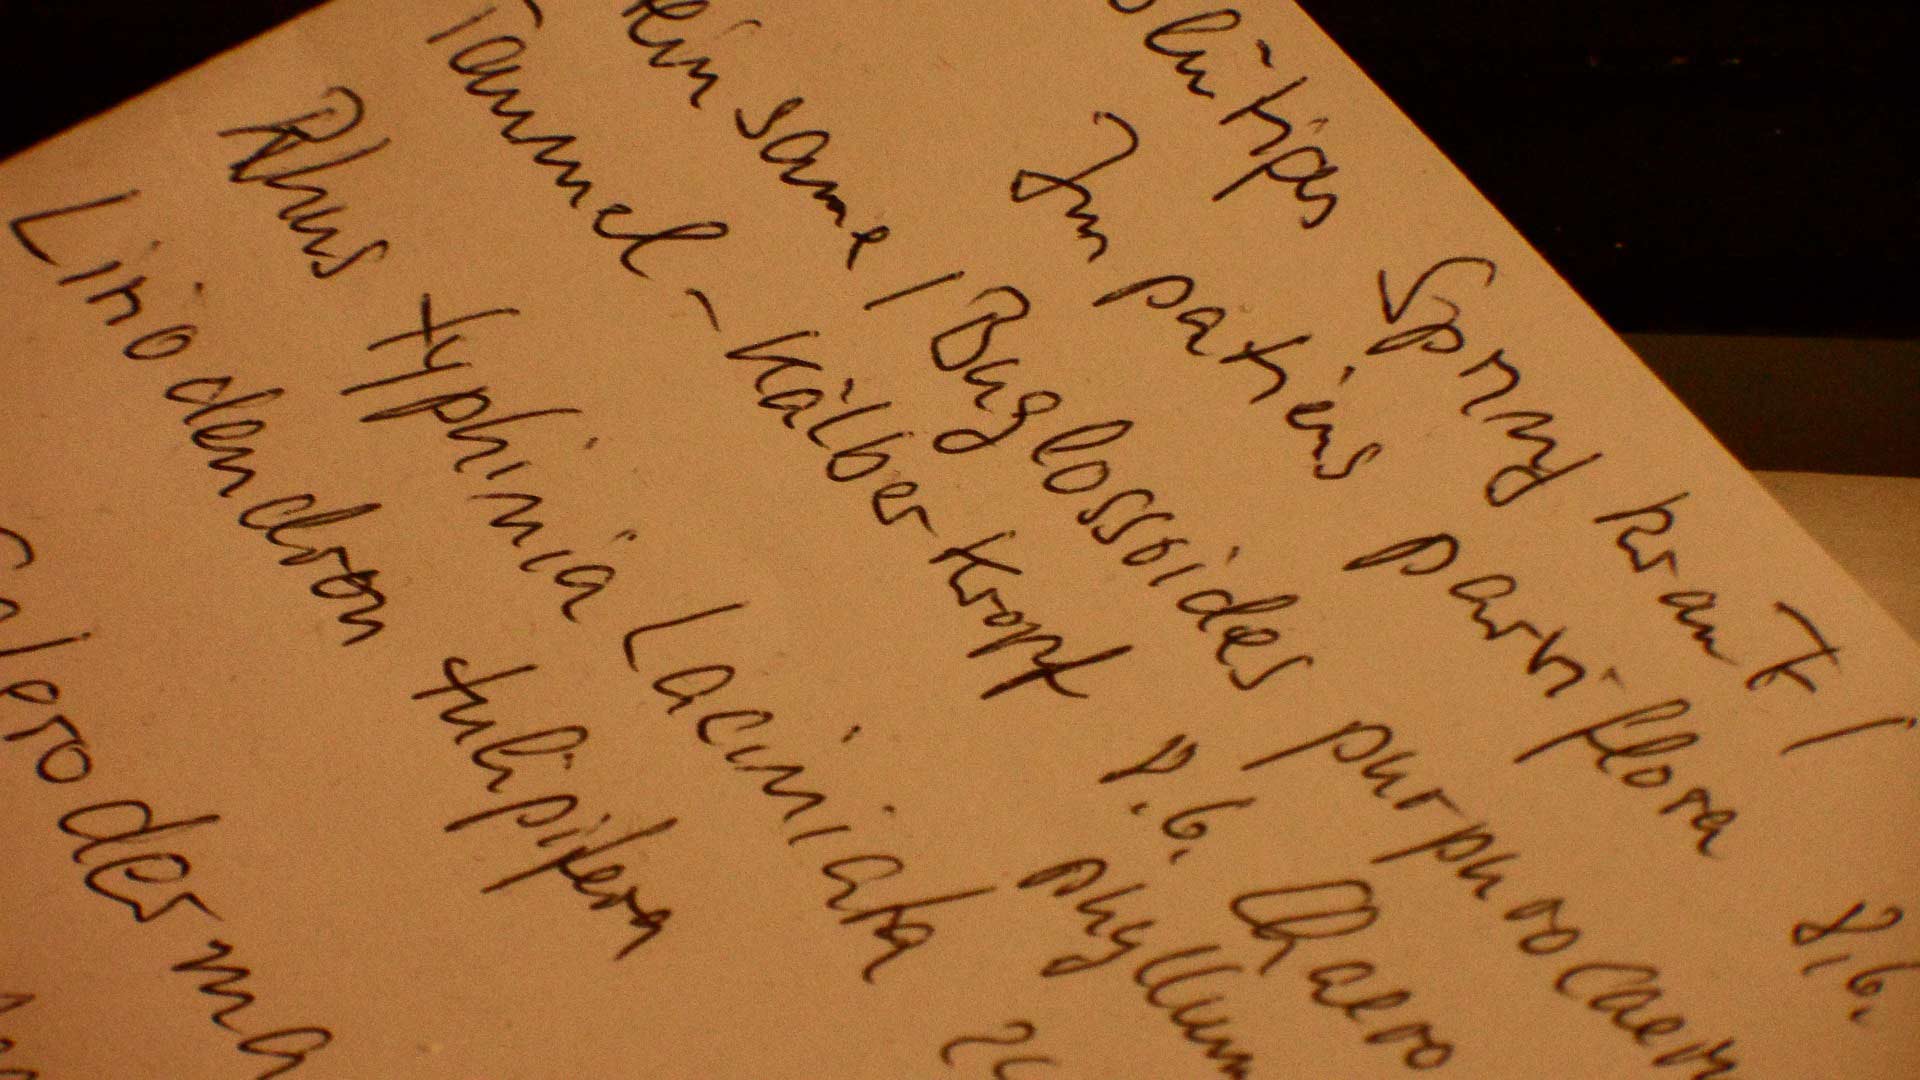 Springkraut /
Impatiens parviflora 8.6.
/ Buglossoides purpurocaer
Taumel-Kälber-Kropf 8.6. Chaero
phyllum
Rhus typhinia Laciniata
Liriodendron tulipifera
leroderma